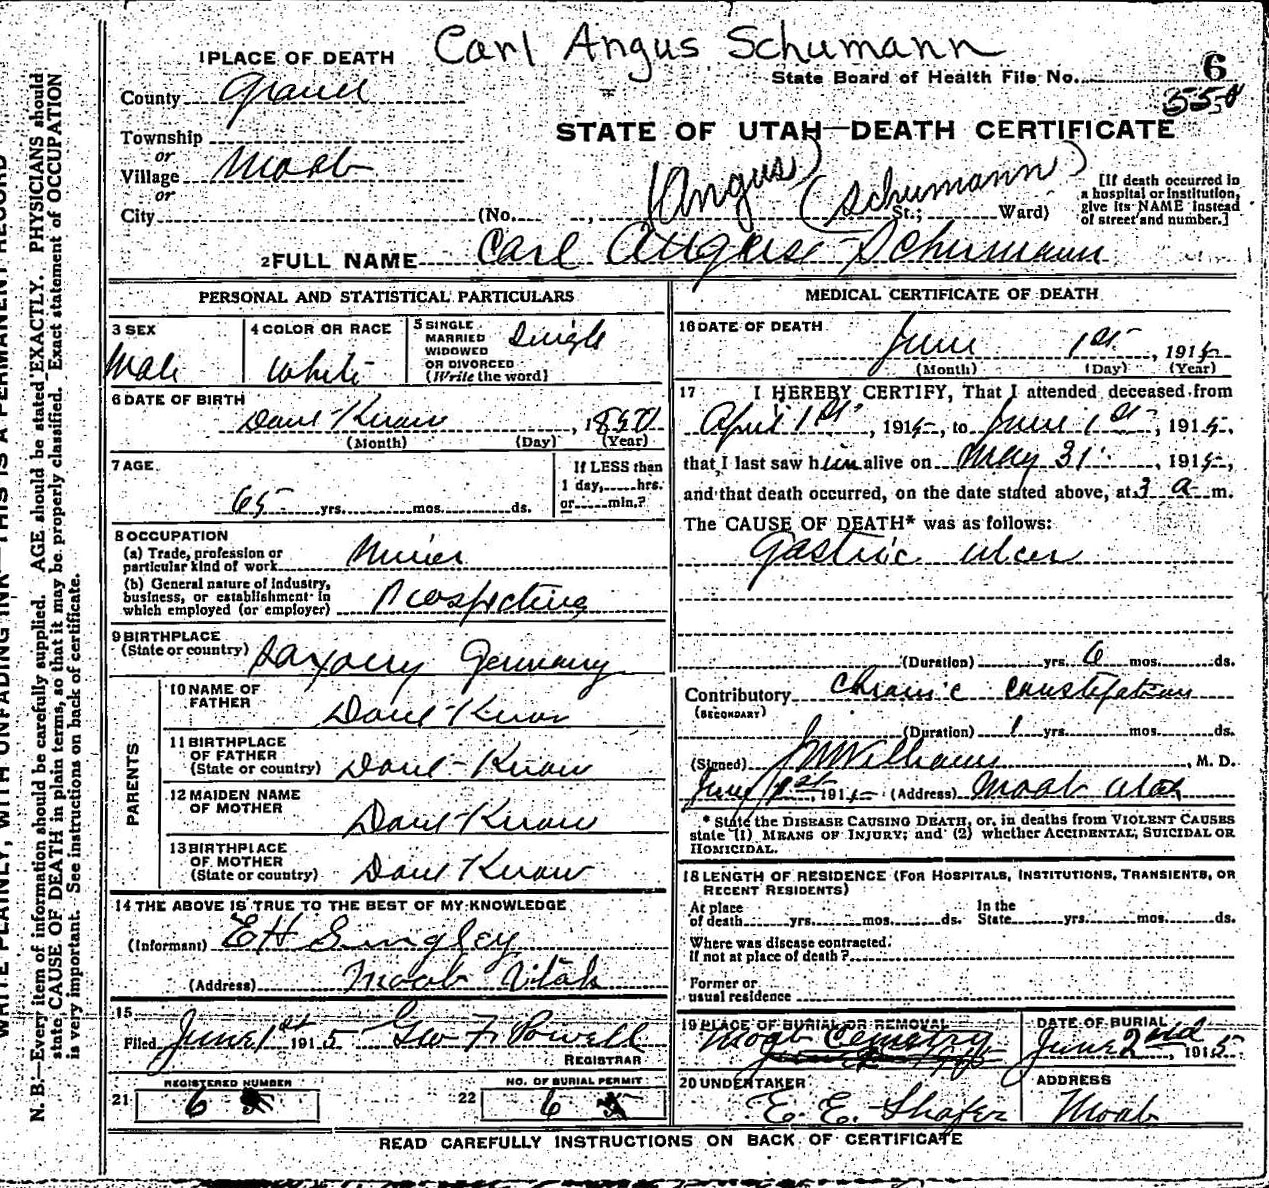 Carl Angus Schumann
1 PLACE OF DEATH
State Board of Health File No. 6
550
County Grand
STATE OF UTAH—DEATH CERTIFICATE
Township
or
Village Moab
or
City (No. , St.; Ward)
(Angus) (Schumann)
[If death occurred in a hospital or institution, give its NAME instead of street and number.]
2 FULL NAME Carl August Schumann
PERSONAL AND STATISTICAL PARTICULARS
3 SEX Male
4 COLOR OR RACE White
5 SINGLE, MARRIED WIDOWED OR DIVORCED (Write the word) Single
6 DATE OF BIRTH Dont Know , 1850
(Month) (Day) (Year)
7 AGE 65 yrs. mos. ds.
If LESS than 1 day, hrs. or min.?
8 OCCUPATION
(a) Trade, profession or particular kind of work Miner
(b) General nature of industry, business, or establishment in which employed (or employer) Prospecting
9 BIRTHPLACE (State or country) Saxony Germany
PARENTS
10 NAME OF FATHER Dont Know
11 BIRTHPLACE OF FATHER (State or country) Dont Know
12 MAIDEN NAME OF MOTHER Dont Know
13 BIRTHPLACE OF MOTHER (State or country) Dont Know
14 THE ABOVE IS TRUE TO THE BEST OF MY KNOWLEDGE
(Informant) E H Singley
(Address) Moab Utah
15
Filed June 1st 1915 Geo F. Powell
REGISTRAR
21 REGISTERED NUMBER 6
22 NO. OF BURIAL PERMIT 6
MEDICAL CERTIFICATE OF DEATH
16 DATE OF DEATH
June 1st , 1915
(Month) (Day) (Year)
17 I HEREBY CERTIFY, That I attended deceased from
April 1st , 1915, to June 1st , 1915,
that I last saw him alive on May 31 , 1915,
and that death occurred, on the date stated above, at 3 a m.
The CAUSE OF DEATH* was as follows:
Gastric ulcer
(Duration) yrs. 6 mos. ds.
Contributory Chronic Constipation
(SECONDARY)
(Duration) 1 yrs. mos. ds.
(Signed) J W Williams , M. D.
June 1st , 1915 (Address) Moab Utah
* State the DISEASE CAUSING DEATH, or, in deaths from VIOLENT CAUSES state (1) MEANS OF INJURY; and (2) whether ACCIDENTAL, SUICIDAL OR HOMICIDAL.
18 LENGTH OF RESIDENCE (FOR HOSPITALS, INSTITUTIONS, TRANSIENTS, OR RECENT RESIDENTS)
At place of death yrs. mos. ds. In the State yrs. mos. ds.
Where was disease contracted, if not at place of death?
Former or usual residence
19 PLACE OF BURIAL OR REMOVAL Moab Cemetry
DATE OF BURIAL June 2nd , 1915
20 UNDERTAKER E. E. Shafer
ADDRESS Moab
READ CAREFULLY INSTRUCTIONS ON BACK OF CERTIFICATE
WRITE PLAINLY, WITH UNFADING INK—THIS IS A PERMANENT RECORD
N. B.—Every item of information should be carefully supplied. AGE should be stated EXACTLY. PHYSICIANS should
state CAUSE OF DEATH in plain terms, so that it may be properly classified. Exact statement of OCCUPATION
is very important. See instructions on back of certificate.